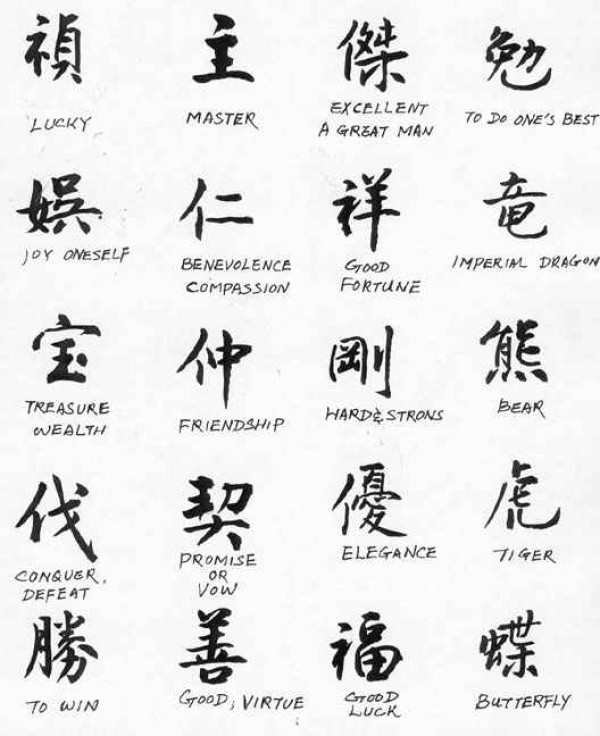 禎 主 傑 勉
LUCKY MASTER EXCELLENT TO DO ONE'S BEST
A GREAT MAN
娯 仁 祥 竜
JOY ONESELF BENEVOLENCE GOOD IMPERIAL DRAGON
COMPASSION FORTUNE
宝 仲 剛 熊
TREASURE FRIENDSHIP HARD & STRONS BEAR
WEALTH
伐 契 優 虎
CONQUER, PROMISE ELEGANCE TIGER
DEFEAT OR
VOW
勝 善 福 蝶
TO WIN GOOD, VIRTUE GOOD BUTTERFLY
LUCK